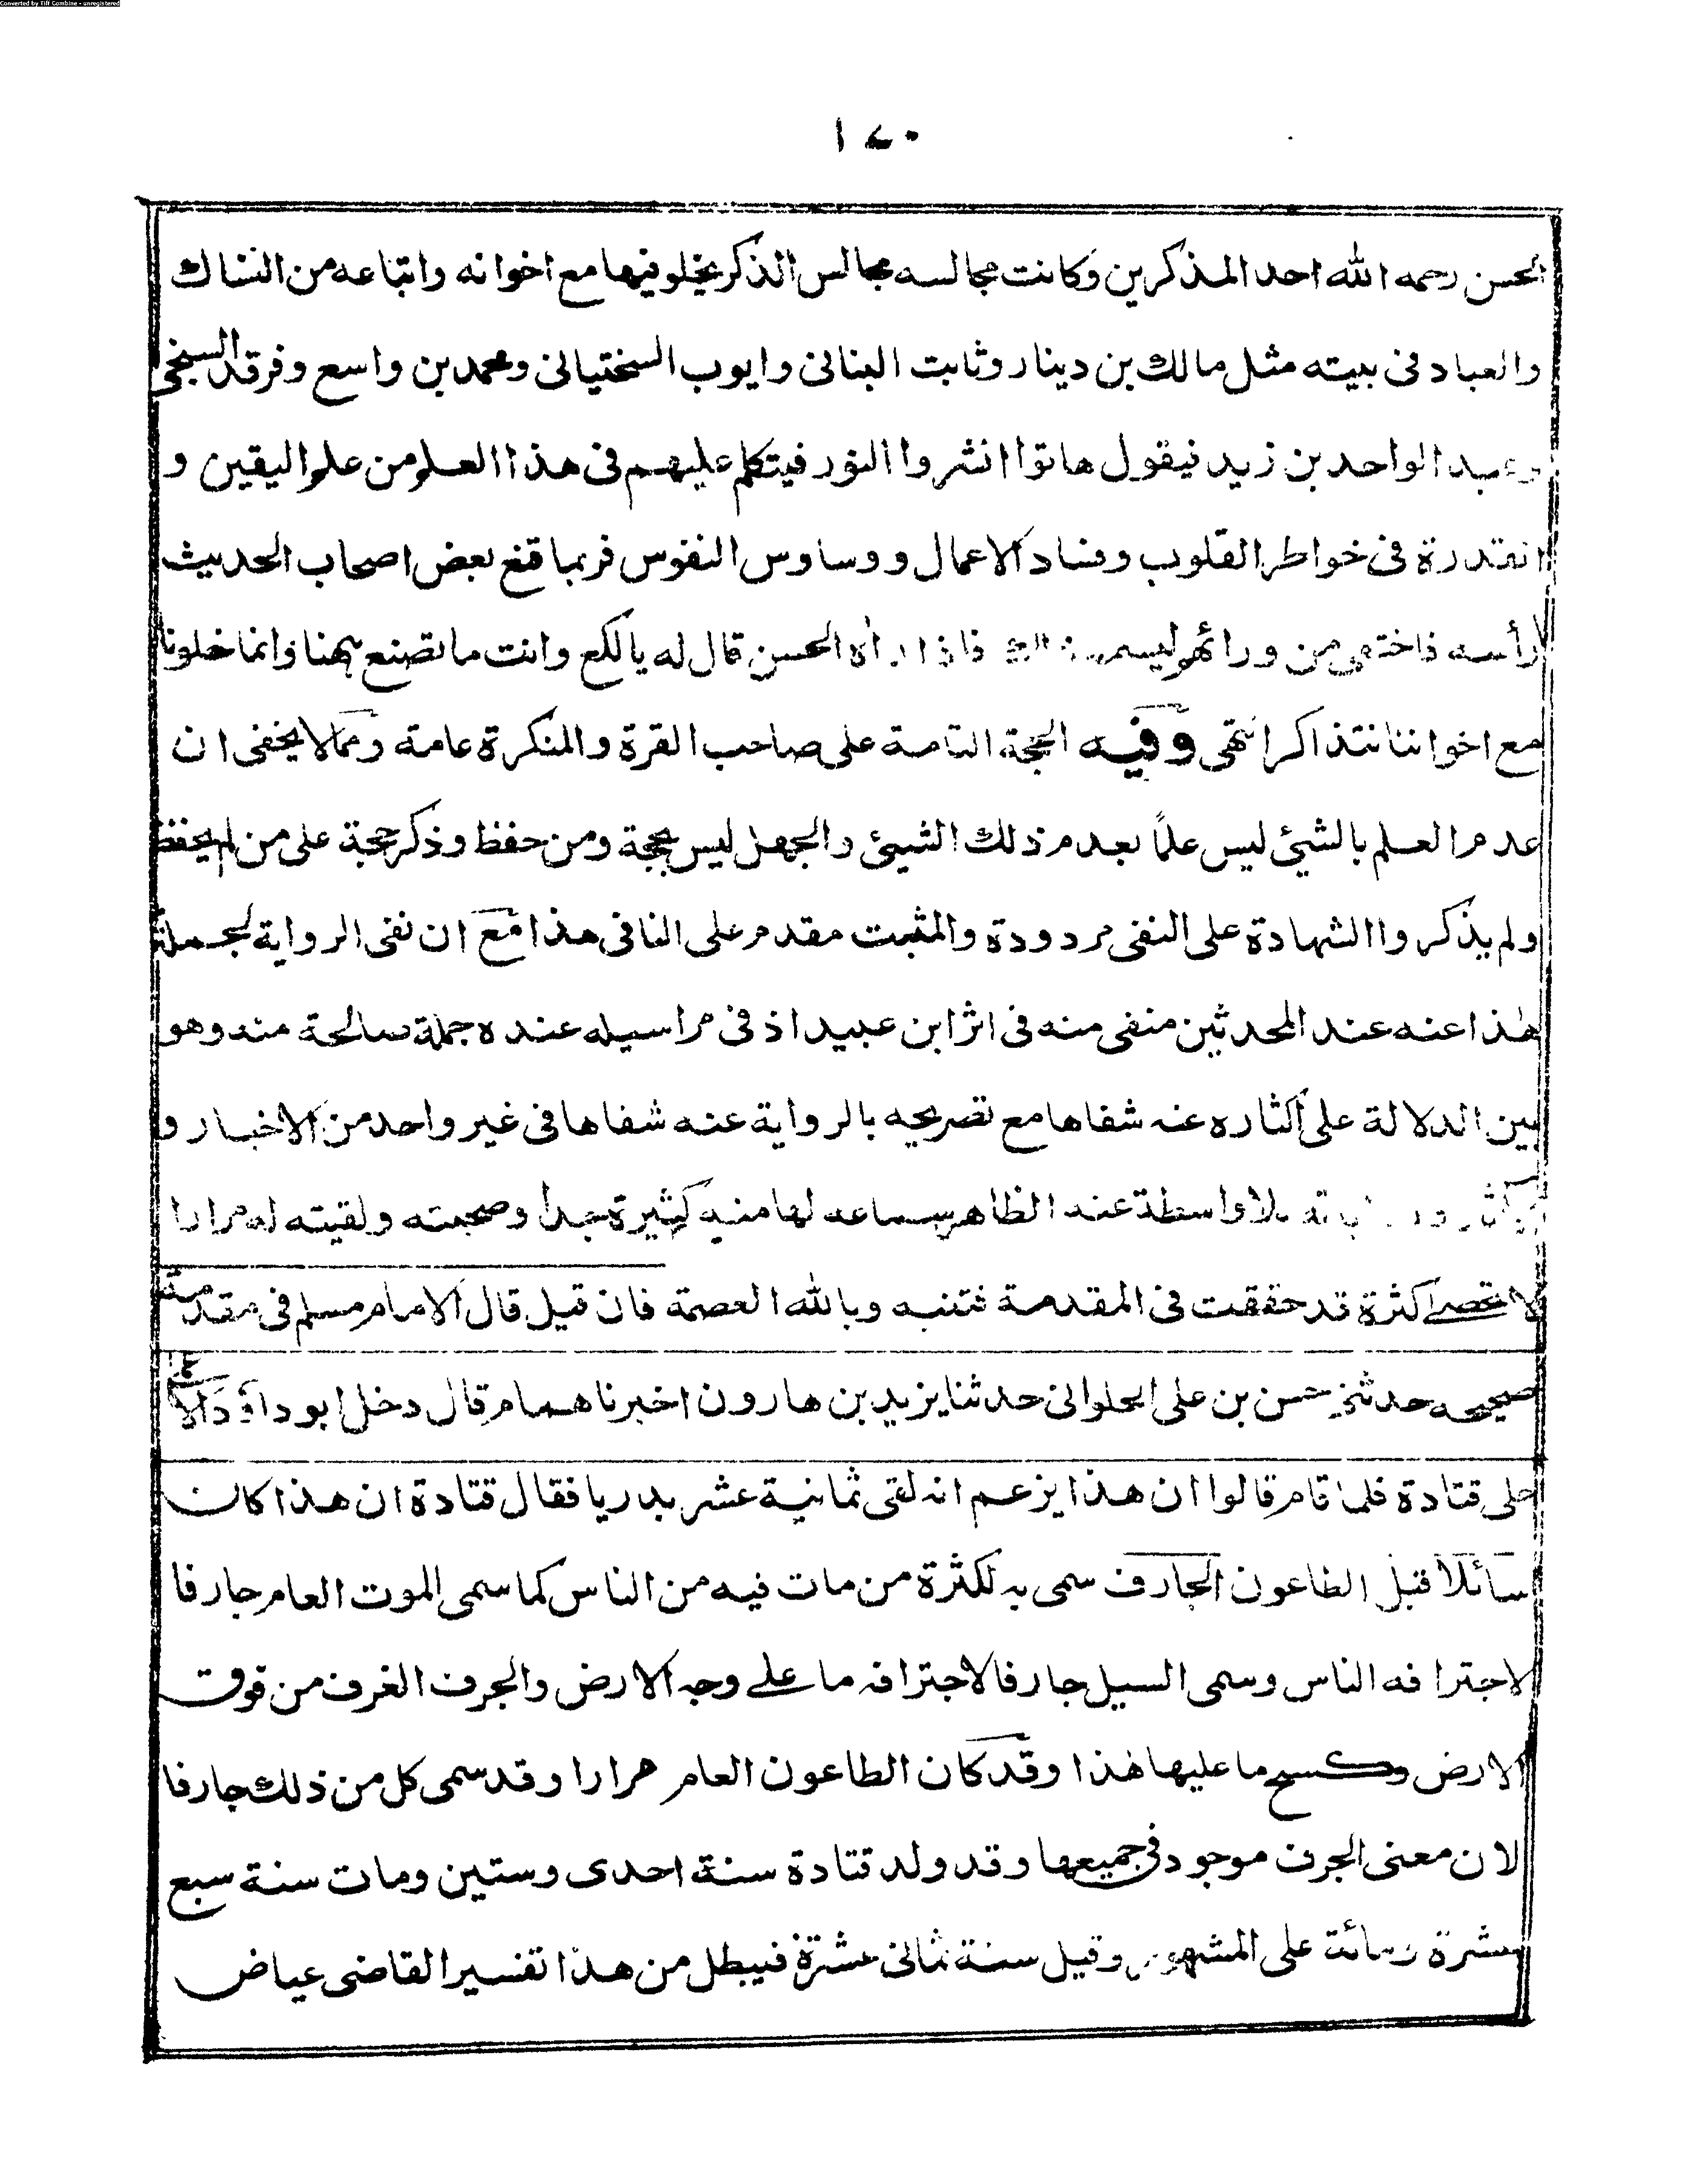 Converted by Tiff Combine - unregistered
١٤٠
الحسن رحمه الله احد المذكرين وكانت مجالسه مجالس الذكر يخلو فيها مع اخوانه واتباعه من النساك
والعباد فى بيته مثل مالك بن دينار وثابت البنانى وايوب السختيانى ومحمد بن واسع وفرقد السبخى
وعبد الواحد بن زيد فيقول هاتوا انشروا النور فيتكلم عليهم فى هذا العلم من علم اليقين و
القدرة فى خواطر القلوب وفساد الاعمال ووساوس النفوس فربما قنع بعض اصحاب الحديث
رأسه فاختفى من ورائهم ليسمع ذلك فاذا راه الحسن قال له يا لكع وانت ما تصنع ههنا وانما خلونا
مع اخواننا نتذاكر انتهى وفيه الحجة التامة على صاحب القرة والمنكرة عامة ومما لا يخفى ان
عدم العلم بالشيئ ليس علمًا بعدم ذلك الشيئ والجهل ليس بحجة ومن حفظ وذكر حجة على من لم يحفظ
ولم يذكر والشهادة على النفى مردودة والمثبت مقدم على النافى هذا مع ان نفى الرواية لجملة
هذا عنه عند المحدثين منفى منه فى اثر ابن عبيد اذ فى مراسيله عنده جملة صالحة منه وهو
بين الدلالة على اكثاره عنه شفاها مع تصريحه بالرواية عنه شفاها فى غير واحد من الاخبار و
بلا واسطة عند الظاهر سماعه لها منه كثيرة جدا وصحبته ولقيته له مرارا
لا تحصى كثرة قد حققت فى المقدمة فتنبه وبالله العصمة فان قيل قال الامام مسلم فى مقدمة
صحيحه حدثنى حسن بن على الحلوانى حدثنا يزيد بن هارون اخبرنا همام قال دخل ابو داؤد الاعمى
على قتادة فلما قام قالوا ان هذا يزعم انه لقى ثمانية عشر بدريا فقال قتادة ان هذا كان
سائلا قبل الطاعون الجارف سمى به لكثرة من مات فيه من الناس كما سمى الموت العام جارفا
لاجترافه الناس وسمى السيل جارفا لاجترافه ما على وجه الارض والجرف الغرف من فوق
الارض وكسح ما عليها هذا وقد كان الطاعون العام مرارا وقد سمى كل من ذلك جارفا
لان معنى الجرف موجود فى جميعها وقد ولد قتادة سنة احدى وستين ومات سنة سبع
عشرة ومائة على المشهور وقيل سنة ثمانى عشرة فيبطل من هذا تفسير القاضى عياض